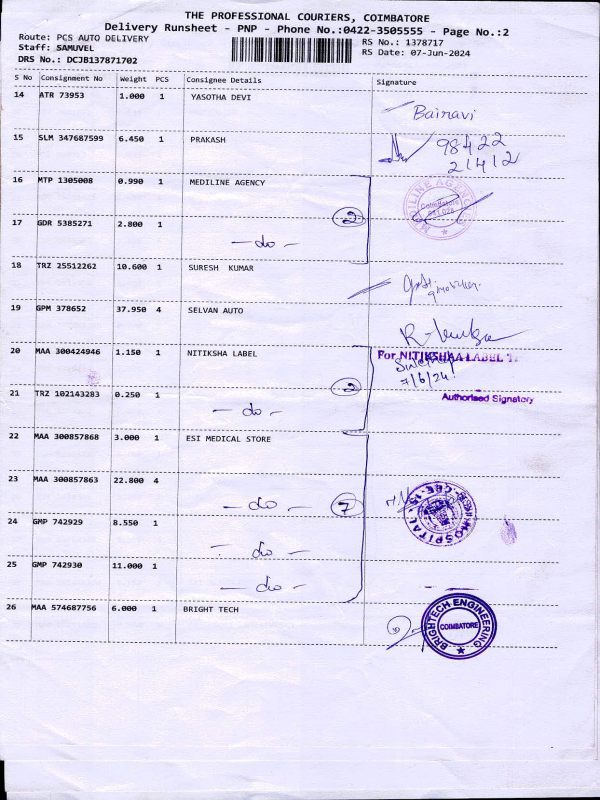 THE PROFESSIONAL COURIERS, COIMBATORE
Delivery Runsheet - PNP - Phone No.:0422-3505555 - Page No.:2
Route: PCS AUTO DELIVERY
Staff: SAMUVEL
DRS No.: DCJB137871702
RS No.: 1378717
RS Date: 07-Jun-2024
S No Consignment No Weight PCS Consignee Details Signature
14 ATR 73953 1.000 1 YASOTHA DEVI Bairavi
15 SLM 347687599 6.450 1 PRAKASH 98422
21412
16 MTP 1305008 0.990 1 MEDILINE AGENCY
2
17 GDR 5385271 2.800 1
- do -
18 TRZ 25512262 10.600 1 SURESH KUMAR
19 GPM 378652 37.950 4 SELVAN AUTO
20 MAA 300424946 1.150 1 NITIKSHA LABEL For NITIKSHAA LABEL
7/6/24
2
21 TRZ 102143283 0.250 1 Authorised Signatory
- do -
22 MAA 300857868 3.000 1 ESI MEDICAL STORE
23 MAA 300857863 22.800 4
- do - 7
HOSPITAL
24 GMP 742929 8.550 1
- do -
25 GMP 742930 11.000 1
- do -
26 MAA 574687756 6.000 1 BRIGHT TECH
BRIGHTECH ENGINEERING
COIMBATORE